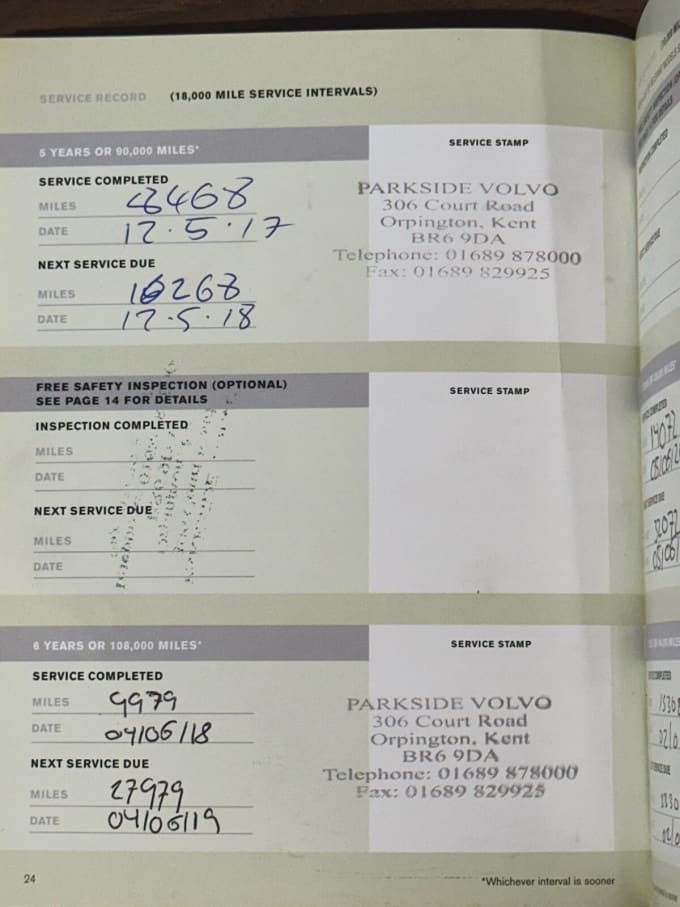 SERVICE RECORD (18,000 MILE SERVICE INTERVALS)
5 YEARS OR 90,000 MILES*
SERVICE STAMP
SERVICE COMPLETED
MILES
DATE 12.5.17
NEXT SERVICE DUE
MILES
DATE 12.5.18
PARKSIDE VOLVO
306 Court Road
Orpington, Kent
BR6 9DA
Telephone: 01689 878000
Fax: 01689 829925
FREE SAFETY INSPECTION (OPTIONAL)
SEE PAGE 14 FOR DETAILS
SERVICE STAMP
INSPECTION COMPLETED
MILES
DATE
NEXT SERVICE DUE
MILES
DATE
6 YEARS OR 108,000 MILES*
SERVICE STAMP
SERVICE COMPLETED
MILES 9979
DATE 04/06/18
NEXT SERVICE DUE
MILES 27979
DATE 04/06/19
PARKSIDE VOLVO
306 Court Road
Orpington, Kent
BR6 9DA
Telephone: 01689 878000
Fax: 01689 829925
24
*Whichever interval is sooner
14072
32072